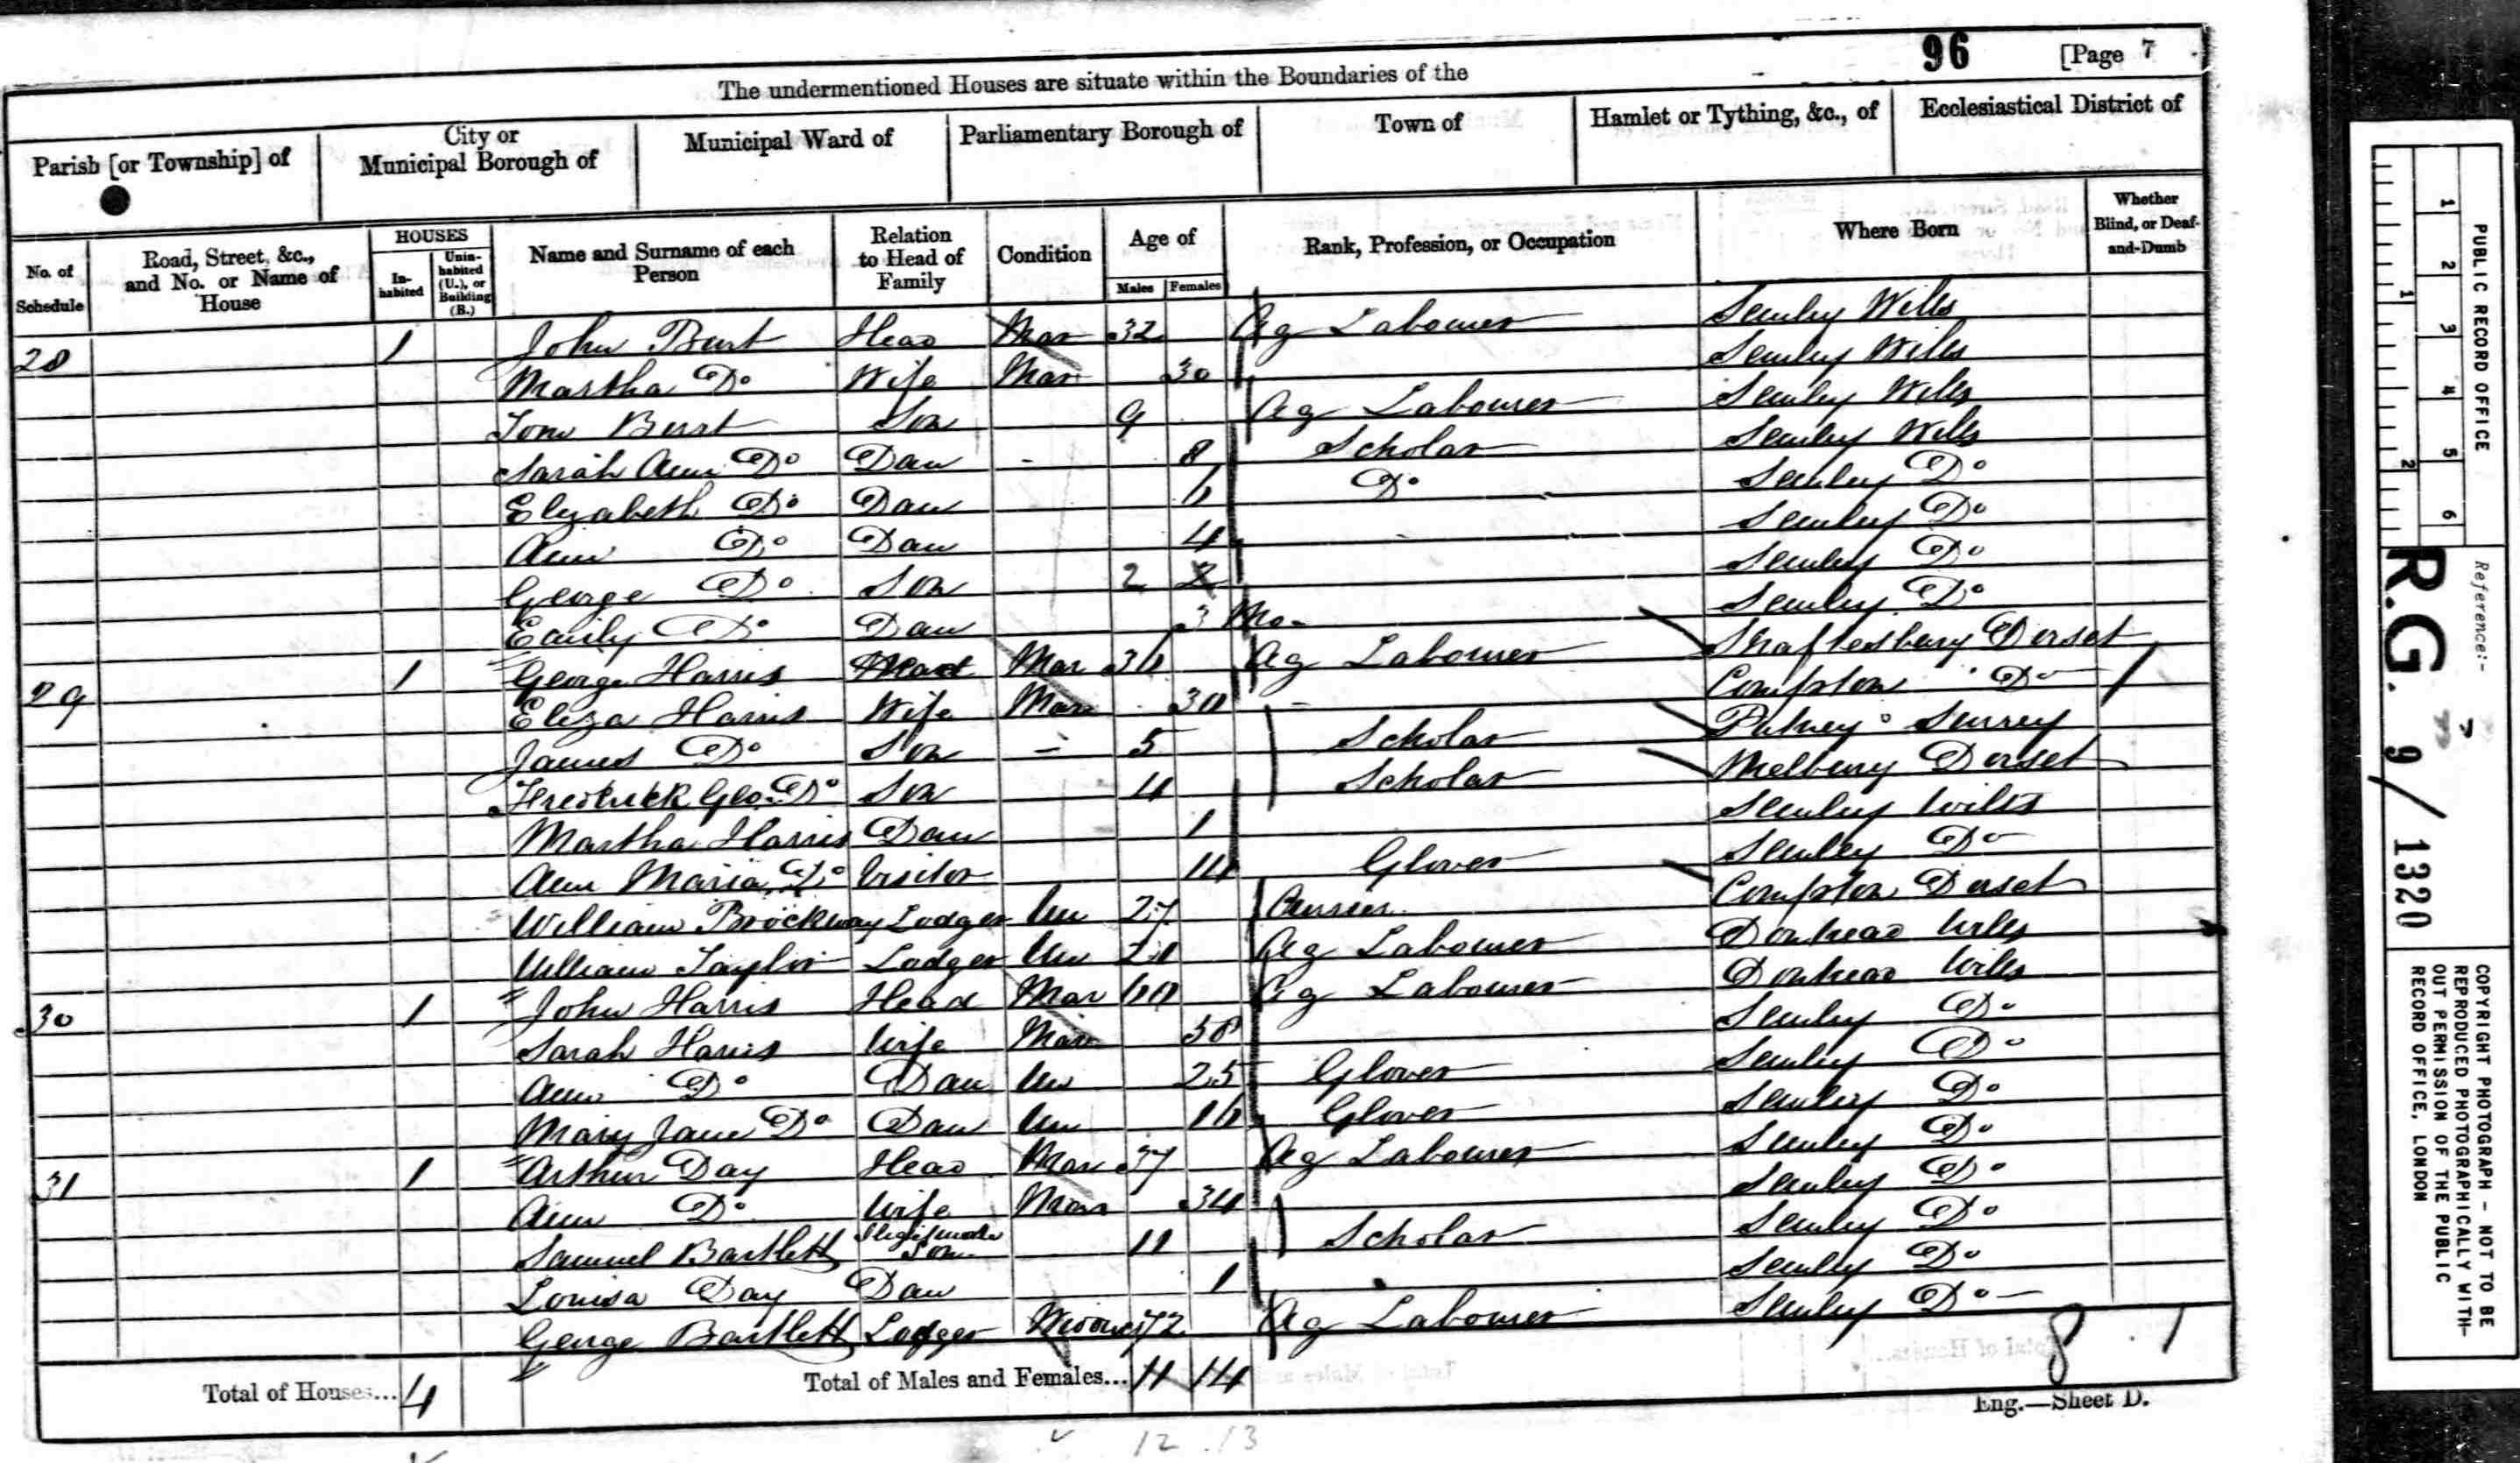 96 [Page 7
The undermentioned Houses are situate within the Boundaries of the
Parish [or Township] of City or Municipal Borough of Municipal Ward of Parliamentary Borough of Town of Hamlet or Tything, &c., of Ecclesiastical District of
No. of Schedule Road, Street, &c., and No. or Name of House HOUSES In-habited Unin-habited (U.), or Building (B.) Name and Surname of each Person Relation to Head of Family Condition Age of Males Females Rank, Profession, or Occupation Where Born Whether Blind, or Deaf-and-Dumb
28 1 John Burt Head Mar 32 Ag Labourer Semley Wilts
Martha Do Wife Mar 30 Semley Wilts
Tom Burt Son 9 Ag Labourer Semley Wilts
Sarah Ann Do Dau - 8 Scholar Semley Wilts
Elizabeth Do Dau 6 Do Semley Do
Ann Do Dau 4 Semley Do
George Do Son 2 2 Semley Do
Emily Do Dau 3 Mo. Semley Do
29 1 George Harris Head Mar 36 Ag Labourer Shaftesbury Dorset
Eliza Harris Wife Mar 30 - Compton Do
James Do Son - 5 Scholar Putney Surrey
Frederick Geo. Do Son 4 Scholar Melbury Dorset
Martha Harris Dau 1 Semley Wilts
Ann Maria Do Visitor 14 Glover Semley Do
William Brockway Lodger Un 27 Compton Dorset
William Taylor Lodger Un 20 Ag Labourer Donhead Wilts
30 1 John Harris Head Mar 60 Ag Labourer Donhead Wilts
Sarah Harris Wife Mar 58 Semley Do
Ann Do Dau Un 25 Glover Semley Do
Mary Jane Do Dau Un 16 Glover Semley Do
31 1 Arthur Day Head Mar 37 Ag Labourer Semley Do
Ann Do Wife Mar 34 Semley Do
Samuel Bartlett Illegitimate Son 11 Scholar Semley Do
Louisa Day Dau 1 Semley Do
George Bartlett Lodger Widower 72 Ag Labourer Semley Do
Total of Houses... 4 Total of Males and Females... 11 14
8 1
Eng.—Sheet D.
12 13
PUBLIC RECORD OFFICE
1 2 3 4 5 6
1 2
Reference:-
R.G. 9/1320
COPYRIGHT PHOTOGRAPH - NOT TO BE
REPRODUCED PHOTOGRAPHICALLY WITH-
OUT PERMISSION OF THE PUBLIC
RECORD OFFICE, LONDON